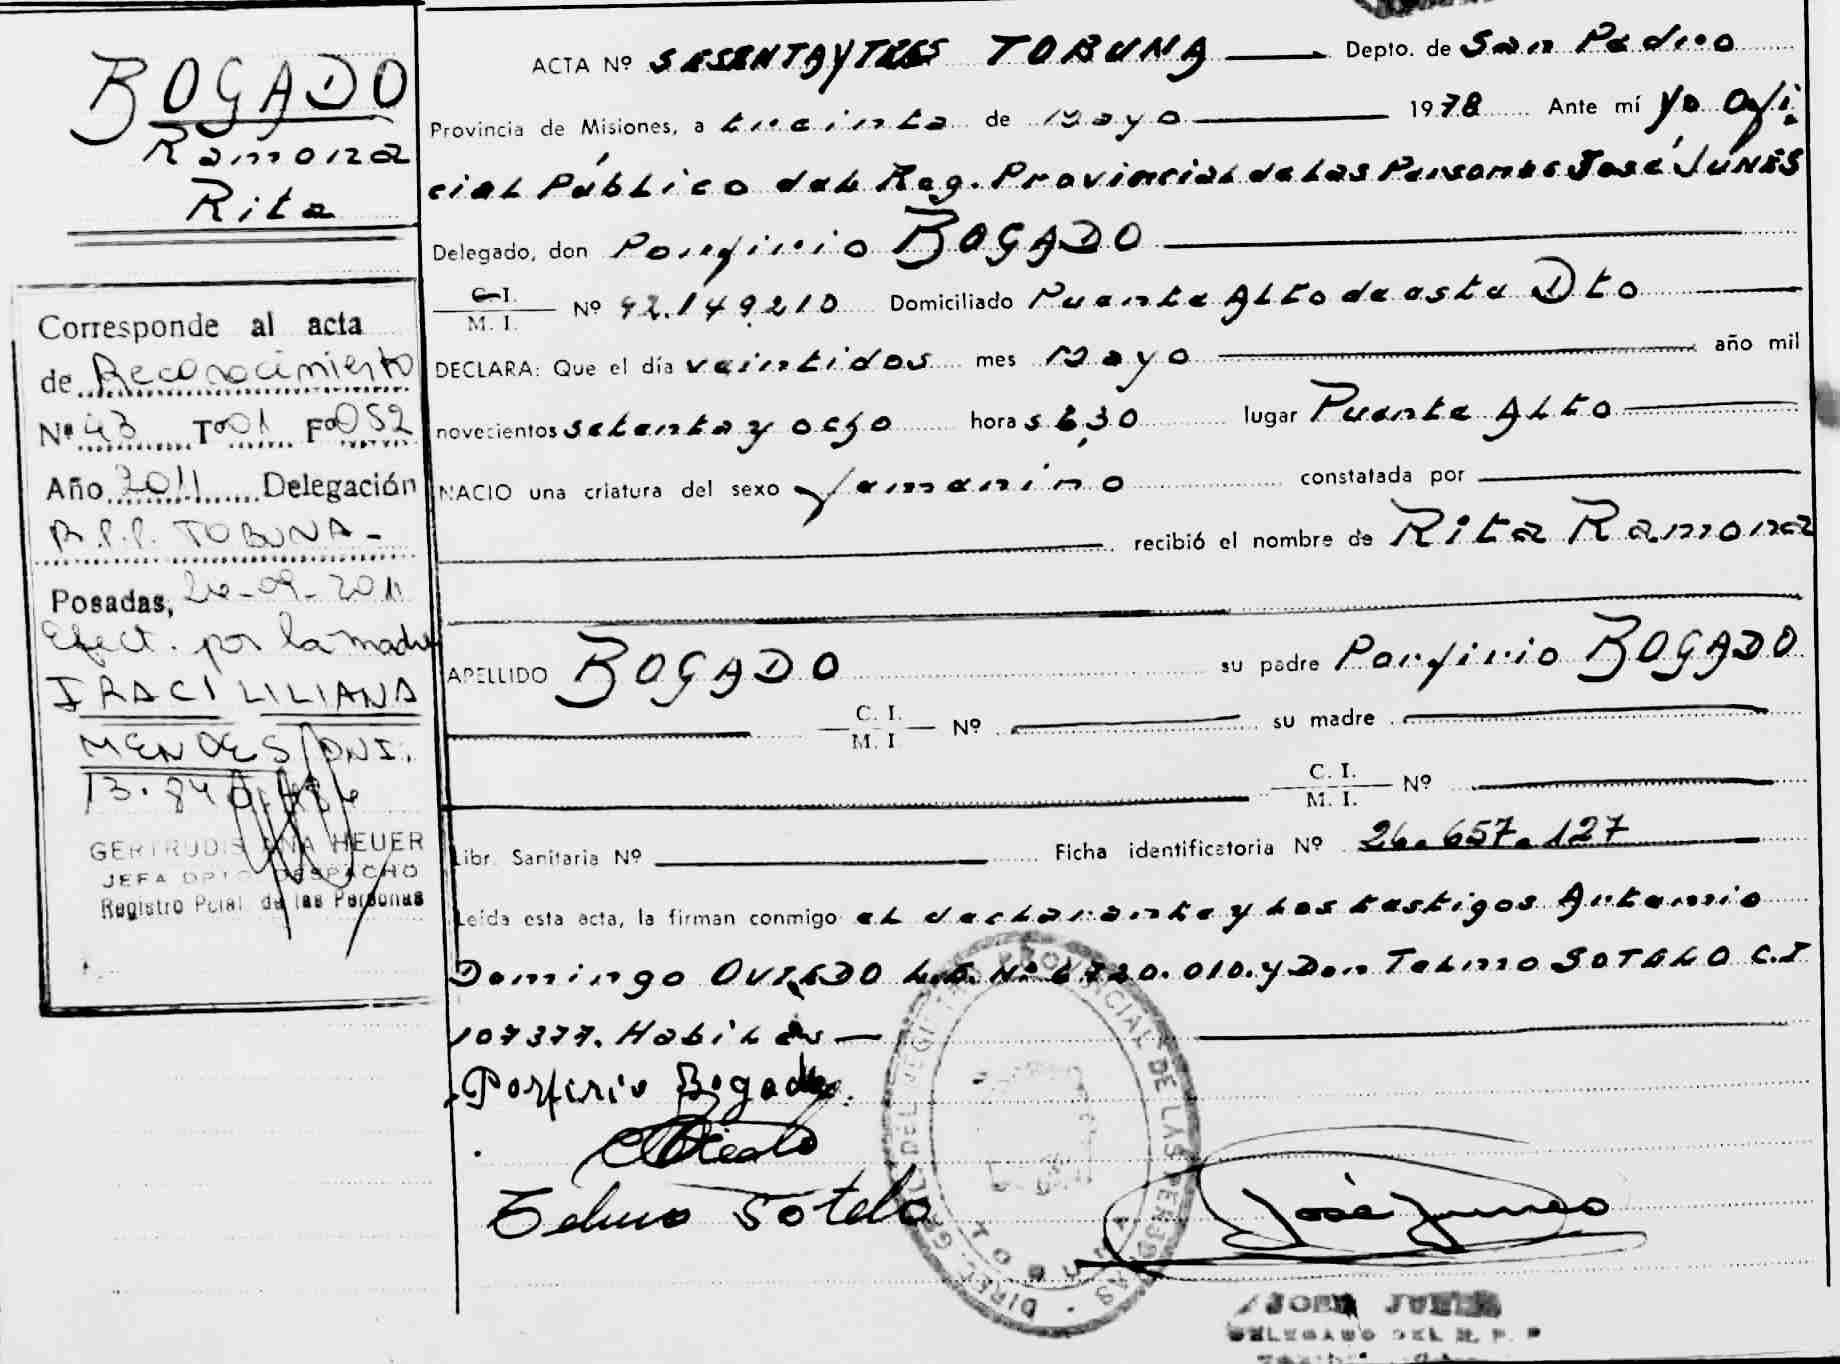 BOGADO
Ramona
Rita
Corresponde al acta
de Reconocimiento
Nº 43 Tº 01 Fº 052
Año 2011 Delegación
R.P.P. TOBUNA-
Posadas, 26-09-2011
Efect. por la madre
IRACI LILIANA
MENDES DNI.
13.84
GERTRUDIS ANA HEUER
JEFA DPTO DESPACHO
Registro Pcial de las Personas
ACTA Nº SESENTA Y TRES TOBUNA Depto. de San Pedro
Provincia de Misiones, a treinta de Mayo 1978 Ante mí Yo Ofi
cial Público del Reg. Provincial de las Personas José JUNES
Delegado, don Porfirio BOGADO
C.I. / M. I. Nº 92.149210 Domiciliado Puente Alto de este Dto
DECLARA: Que el día veintidos mes Mayo año mil
novecientos setenta y ocho hora s 6,30 lugar Puente Alto
NACIO una criatura del sexo femenino constatada por
recibió el nombre de Rita Ramona
APELLIDO BOGADO su padre Porfirio BOGADO
C. I. / M. I. Nº su madre
C. I. / M. I. Nº
Libr. Sanitaria Nº Ficha identificatoria Nº 26.657.127
Leída esta acta, la firman conmigo el declarante y los testigos Antonio
Domingo OVIEDO Nº 6720.010. y Don Telmo SOTELO C.I
107377. Habiles
Porfirio Bogado.
Telmo Sotelo
José Junes
DIREC. GRAL. DEL REGISTRO PROVINCIAL DE LAS PERSONAS
TOBUNA
JOSE JUNES
DELEGADO DEL R. P. P